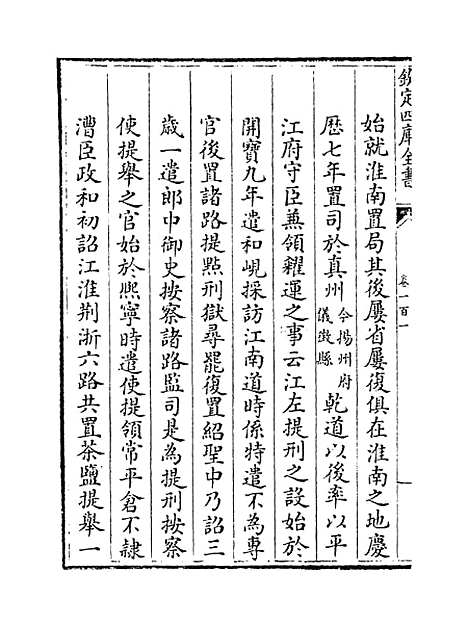 欽定四庫全書
卷一百一
始就淮南置局其後屢省屢復俱在淮南之地慶
歴七年置司於真州今揚州府儀徴縣乾道以後率以平
江府守臣兼領糴運之事云江左提刑之設始於
開寶九年遣和峴採訪江南道時係特遣不為專
官後置諸路提㸃刑獄尋罷復置紹聖中乃詔三
歳一遣郎中御史按察諸路監司是為提刑按察
使提舉之官始於熙寧時遣使提領常平倉不隷
漕臣政和初詔江淮荆浙六路共置茶鹽提舉一